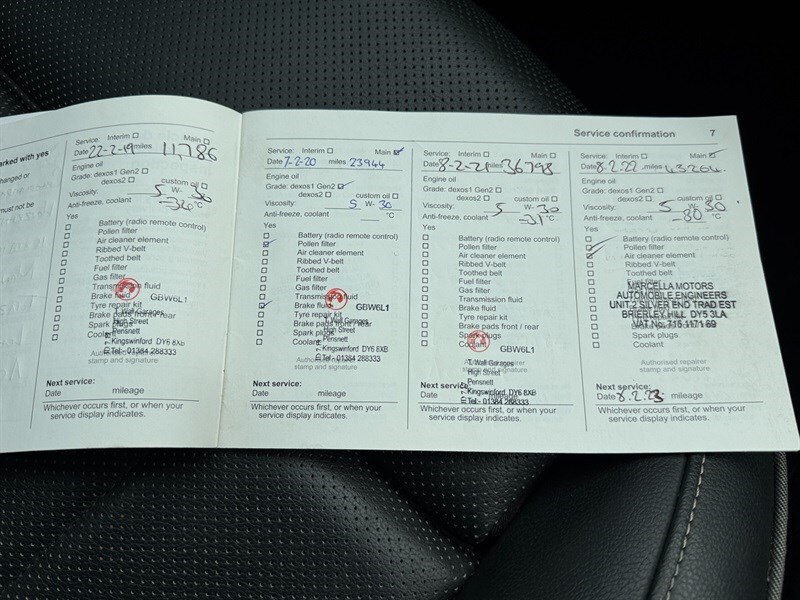 Service confirmation 7
arked with yes
hanged or
must not be
Service: Interim ☐ Main ☐
Date 22-2-19 miles 11,786
Engine oil
Grade: dexos1 Gen2 ☐
dexos2 ☐ custom oil ☐
Viscosity: 5 W- 30
Anti-freeze, coolant -36 °C
Yes
☐ Battery (radio remote control)
☐ Pollen filter
☐ Air cleaner element
☐ Ribbed V-belt
☐ Toothed belt
☐ Fuel filter
☐ Gas filter
☐ Transmission fluid
☐ Brake fluid
☐ Tyre repair kit
☐ Brake pads front / rear
☐ Spark plugs
☐ Coolant
GBW6L1
T. Wall Garages
High Street
Pensnett
Kingswinford DY6 8XB
Tel:- 01384 288333
Authorised repairer
stamp and signature
Next service:
Date mileage
Whichever occurs first, or when your
service display indicates.
Service: Interim ☐ Main ☑
Date 7-2-20 miles 23944
Engine oil
Grade: dexos1 Gen2 ☑
dexos2 ☐ custom oil ☐
Viscosity: 5 W- 30
Anti-freeze, coolant °C
Yes
☐ Battery (radio remote control)
☑ Pollen filter
☐ Air cleaner element
☐ Ribbed V-belt
☐ Toothed belt
☐ Fuel filter
☐ Gas filter
☐ Transmission fluid
☑ Brake fluid
☐ Tyre repair kit
☐ Brake pads front / rear
☐ Spark plugs
☐ Coolant
GBW6L1
T. Wall Garages
High Street
Pensnett
Kingswinford DY6 8XB
Tel:- 01384 288333
Authorised repairer
stamp and signature
Next service:
Date mileage
Whichever occurs first, or when your
service display indicates.
Service: Interim ☐ Main ☐
Date 8-2-21 miles 36798
Engine oil
Grade: dexos1 Gen2 ☐
dexos2 ☐ custom oil ☐
Viscosity: 5 W- 30
Anti-freeze, coolant -31 °C
Yes
☐ Battery (radio remote control)
☐ Pollen filter
☐ Air cleaner element
☐ Ribbed V-belt
☐ Toothed belt
☐ Fuel filter
☐ Gas filter
☐ Transmission fluid
☐ Brake fluid
☐ Tyre repair kit
☐ Brake pads front / rear
☐ Spark plugs
☐ Coolant
GBW6L1
Authorised repairer
stamp and signature
T. Wall Garages
High Street
Pensnett
Kingswinford DY6 8XB
Tel:- 01384 288333
Next service:
Date mileage
Whichever occurs first, or when your
service display indicates.
Service: Interim ☐ Main ☑
Date 8.2.22 miles 43264.
Engine oil
Grade: dexos1 Gen2 ☐
dexos2 ☐ custom oil ☐
Viscosity: 5 W- 30
Anti-freeze, coolant -80 °C
Yes
☐ Battery (radio remote control)
☑ Pollen filter
☐ Air cleaner element
☐ Ribbed V-belt
☐ Toothed belt
☐ Fuel filter
☐ Gas filter
☐ Transmission fluid
☐ Brake fluid
☐ Tyre repair kit
☐ Brake pads front / rear
☐ Spark plugs
☐ Coolant
MARCELLA MOTORS
AUTOMOBILE ENGINEERS
UNIT.2 SILVER END TRAD EST
BRIERLEY HILL DY5 3LA
VAT No: 715 1171 89
Authorised repairer
stamp and signature
Next service:
Date 8.2.23 mileage
Whichever occurs first, or when your
service display indicates.